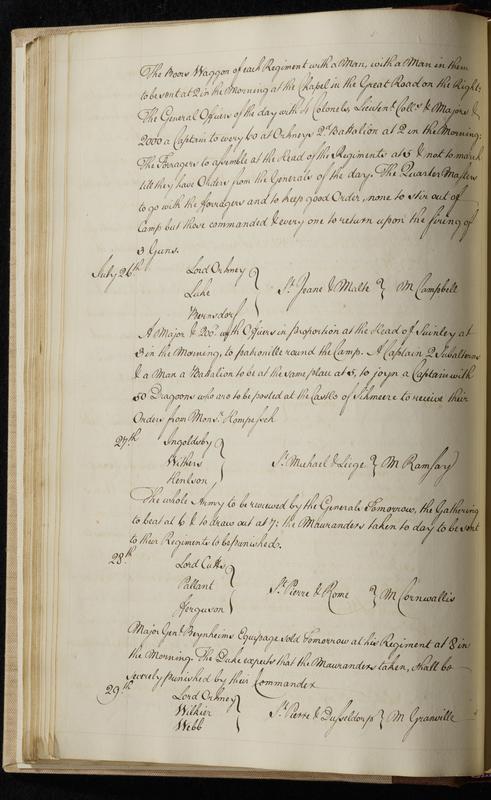 The Boors Waggon of each Regiment with a Man, with a Man in them
to be sent at 2 in the Morning at the Chapel in the Great Road on the Right;
The General Officers of the day with 4 Colonels, Lieutent. Collo. & Majors &
2000 a Captain to every 60 at Orkneys 2d. Battalion at 2 in the Morning:
The Forragers to assemble at the Head of the Regiments at 5 & not to march
till they have Orders from the Generals of the day. The Quarter Masters
to go with the fforragers and to keep good Order, none to stir out of
Camp but those commanded & every one to return upon the firing of
3 Guns.
July 26th Lord Orkney
Luke } St. Jeane & Malte } M Campbell
Bernsdorf
A Major & 200. with Officers in proportion at the Head of at
3 in the Morning, to patroville round the Camp. A Captain 2 Subalterns
& a Man a Battalion to be at the same place at 5, to joyn a Captain with
50 Dragoons who are to be posted at the Castle of to receive their
Orders from Monsr. Rompesch
27.th Ingoldsby
Withers } St. Michael & Liege } M Ramsay
Henlson
The whole Army to be reviewed by the Generals Tomorrow, the Gathering
to beat at 6 & to draw out at 7; the Mauranders taken to day to be sent
to their Regiments to be punished.
28.th Lord Cutts
Pallant } St. Pierre & Rome } M Cornwallis
Fferguson
Major Genl. Beynheims Equipage sold Tomorrow at his Regiment at 8 in
the Morning. The Duke expects that the Mauranders taken, shall be
severely punished by their Commander
29.th Lord Orkney
Withier } St. Pierre & Dusseldorp } M Granville
Webb